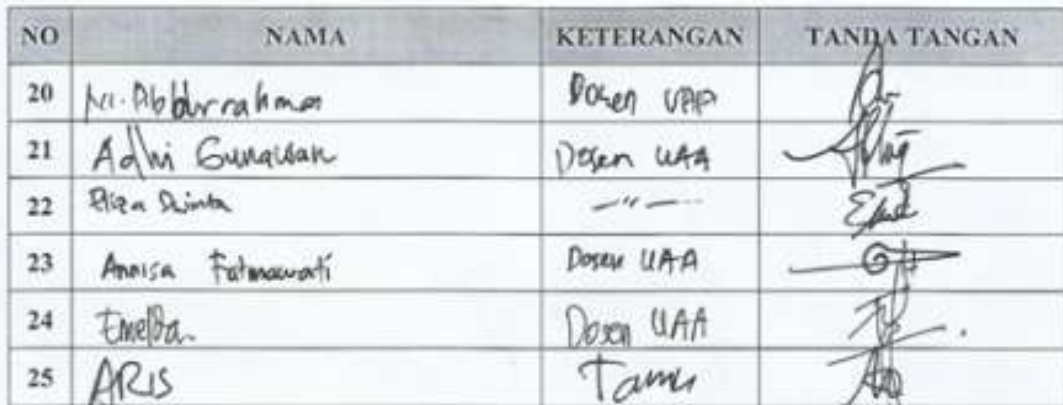 NO NAMA KETERANGAN TANDA TANGAN
20 M. Abdurrahman Dosen UAA
21 Adhi Gunawan Dosen UAA
22 Eliza Dwinta -"-
23 Annisa Fatmawati Dosen UAA
24 Emelda Dosen UAA
25 ARIS Tamu